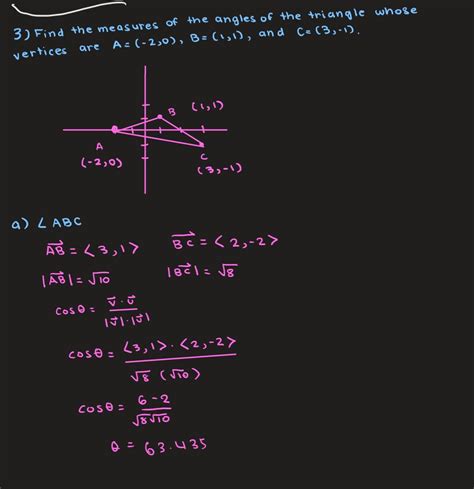 3) Find the measures of the angles of the triangle whose
vertices are A=(-2,0), B=(1,1), and C=(3,-1).
B (1,1)
A
(-2,0)
C
(3,-1)
a) ∠ABC
AB→ = <3,1> BC→ = <2,-2>
|AB→| = √10 |BC→| = √8
cosθ = v→·u→ / |v→|·|u→|
cosθ = <3,1>·<2,-2> / √8 (√10)
cosθ = 6-2 / √8√10
θ = 63.435